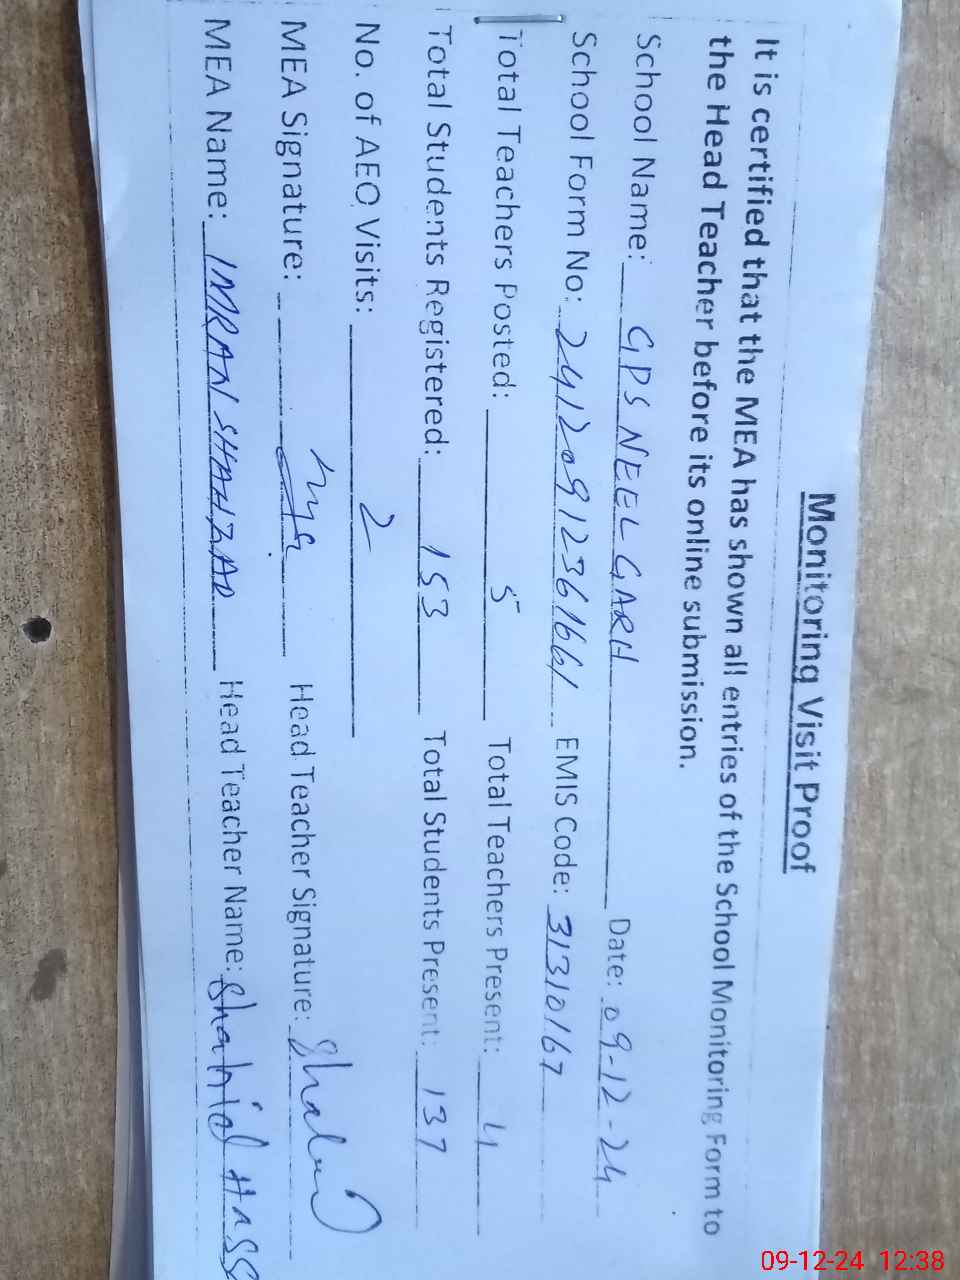 Monitoring Visit Proof
It is certified that the MEA has shown all entries of the School Monitoring Form to
the Head Teacher before its online submission.
School Name: GPS NEEL GARH Date: 09-12-24
School Form No: 241209123616661 EMIS Code: 31310167
Total Teachers Posted: 5 Total Teachers Present: 4
Total Students Registered: 153 Total Students Present: 137
No. of AEO Visits: 2
MEA Signature: Head Teacher Signature: Shahid
MEA Name: IMRAN SHAHZAD Head Teacher Name: Shahid Hass
09-12-24 12:38